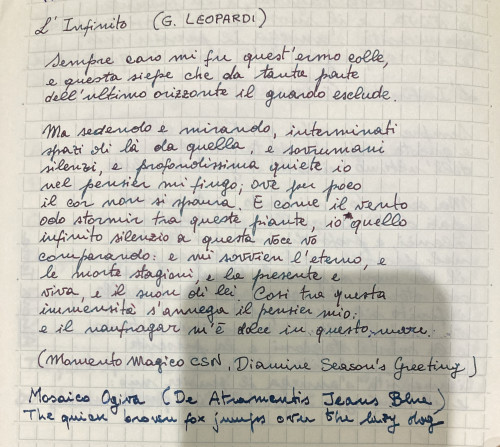 L'Infinito (G. LEOPARDI)
Sempre caro mi fu quest'ermo colle,
e questa siepe che da tanta parte
dell'ultimo orizzonte il guardo esclude.
Ma sedendo e mirando, interminati
spazi di là da quella, e sovrumani
silenzi, e profondissima quiete io
nel pensier mi fingo; ove per poco
il cor non si spaura. E come il vento
odo stormir tra queste piante, io quello
infinito silenzio a questa voce vo
comparando: e mi sovvien l'eterno, e
le morte stagioni, e la presente e
viva, e il suon di lei. Così tra questa
immensità s'annega il pensier mio:
e il naufragar m'è dolce in questo mare.
(Momento Magico CSN, Diamine Season's Greeting)
Mosaico Ogiva (De Atramentis Jeans Blue)
The quick brown fox jumps over the lazy dog